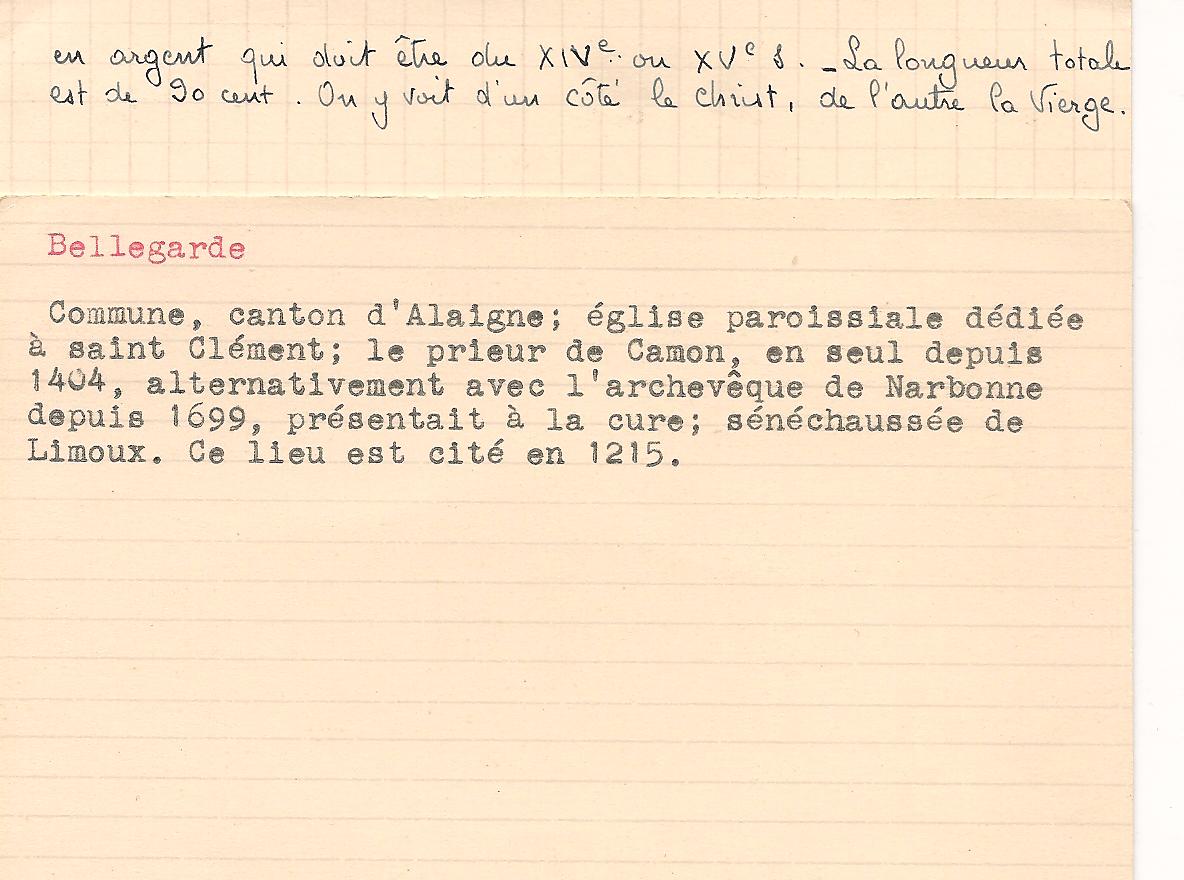 en argent qui doit être du XIVe. ou XVe s. - La longueur totale
est de 90 cent. On y voit d'un côté le Christ, de l'autre la Vierge.
Bellegarde
Commune, canton d'Alaigne; église paroissiale dédiée
à saint Clément; le prieur de Camon, en seul depuis
1404, alternativement avec l'archevêque de Narbonne
depuis 1699, présentait à la cure; sénéchaussée de
Limoux. Ce lieu est cité en 1215.